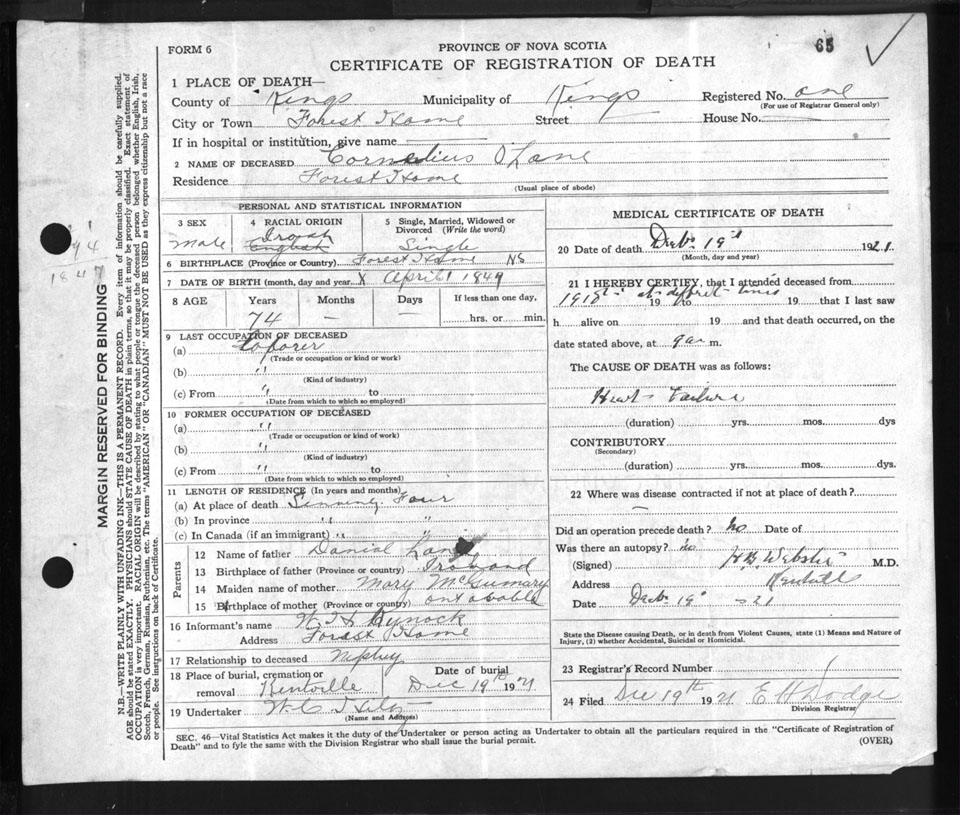 65
FORM 6
PROVINCE OF NOVA SCOTIA
CERTIFICATE OF REGISTRATION OF DEATH
1 PLACE OF DEATH—
County of Kings Municipality of Kings Registered No. one
(For use of Registrar General only)
City or Town Forest Home Street House No.
If in hospital or institution, give name
2 NAME OF DECEASED Cornelius O'Lane
Residence Forest Home
(Usual place of abode)
PERSONAL AND STATISTICAL INFORMATION
3 SEX
Male
4 RACIAL ORIGIN
Irosh
English
5 Single, Married, Widowed or Divorced (Write the word)
Single
6 BIRTHPLACE (Province or Country) Forest Home NS
7 DATE OF BIRTH (month, day and year) X April 1849
8 AGE Years Months Days If less than one day,
74 — hrs. or min.
9 LAST OCCUPATION OF DECEASED
(a) Laborer
(Trade or occupation or kind or work)
(b) "
(Kind of industry)
(c) From " to
(Date from which to which so employed)
10 FORMER OCCUPATION OF DECEASED
(a) "
(Trade or occupation or kind of work)
(b) "
(Kind of industry)
(c) From " to
(Date from which to which so employed)
11 LENGTH OF RESIDENCE (In years and months)
(a) At place of death Four
(b) In province " "
(c) In Canada (if an immigrant) " "
Parents
12 Name of father Danial Lane
13 Birthplace of father (Province or country)
14 Maiden name of mother Mary McGumary
15 Birthplace of mother (Province or country)
16 Informant's name W. H. Hynock
Address Forast Home
17 Relationship to deceased Nephy
18 Place of burial, cremation or removal Kentville
Date of burial Dec 19th 1921
19 Undertaker W. C.
(Name and Address)
MEDICAL CERTIFICATE OF DEATH
20 Date of death Decbr 19th 1921
(Month, day and year)
21 I HEREBY CERTIFY, that I attended deceased from
1918 at diffret times
19 to 19 that I last saw
h alive on 19 and that death occurred, on
date stated above, at 9 a m.
The CAUSE OF DEATH was as follows:
Heart Failure
(duration) yrs. mos. dys
CONTRIBUTORY
(Secondary)
(duration) yrs. mos. dys.
22 Where was disease contracted if not at place of death?
—
Did an operation precede death? No Date of
Was there an autopsy? No
(Signed) H B Webster M.D.
Address Kentville
Date Decbr 19 - 21
State the Disease causing Death, or in death from Violent Causes, state (1) Means and Nature of Injury, (2) whether Accidental, Suicidal or Homicidal.
23 Registrar's Record Number 1
24 Filed Dec 19th 1921 E H Dodge
Division Registrar
SEC. 46—Vital Statistics Act makes it the duty of the Undertaker or person acting as Undertaker to obtain all the particulars required in the "Certificate of Registration of
Death" and to fyle the same with the Division Registrar who shall issue the burial permit.
(OVER)
MARGIN RESERVED FOR BINDING
N.B.—WRITE PLAINLY WITH UNFADING INK—THIS IS A PERMANENT RECORD. Every item of information should be carefully supplied.
AGE should be stated EXACTLY. PHYSICIANS should STATE CAUSE OF DEATH in plain terms, so that it may be properly classified. Exact statement of
OCCUPATION is very important. RACIAL ORIGIN will be described by stating to what people or tongue the deceased person belonged whether English, Irish,
Scotch, French, German, Russian, Ruthenian, etc. The terms "AMERICAN" OR "CANADIAN" MUST NOT BE USED as they express citizenship but not a race
or people. See instructions on back of Certificate.
1847